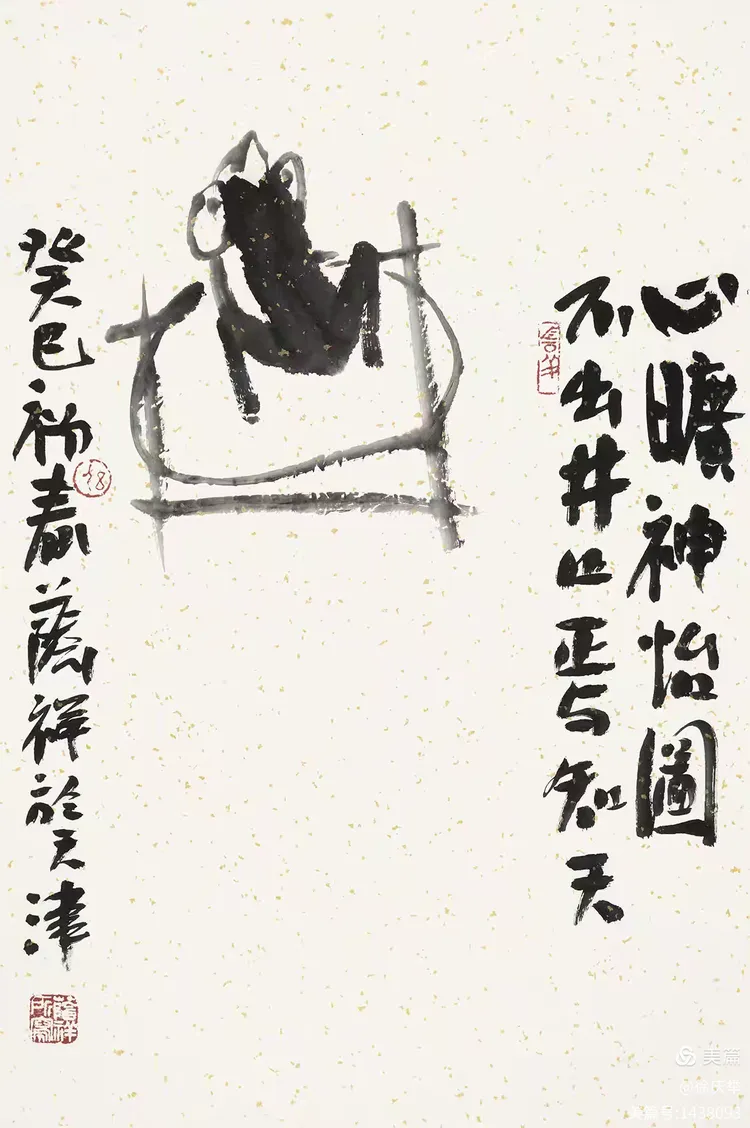 心曠神怡圖
不出井口焉知天
癸巳初春蔭祥於天津
美篇
美篇号:1438093